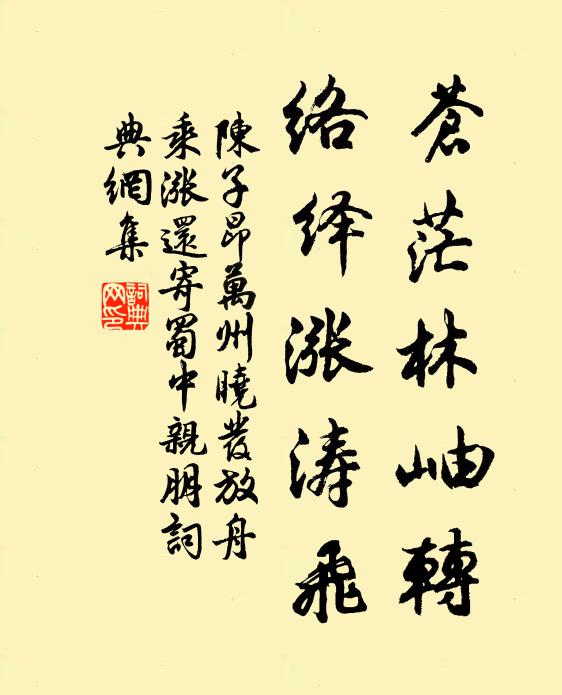 蒼茫林岫轉
络绎漲涛飛
陳子昂萬州曉發放舟
乘漲還寄蜀中親朋詞
典網集
詞典
网印